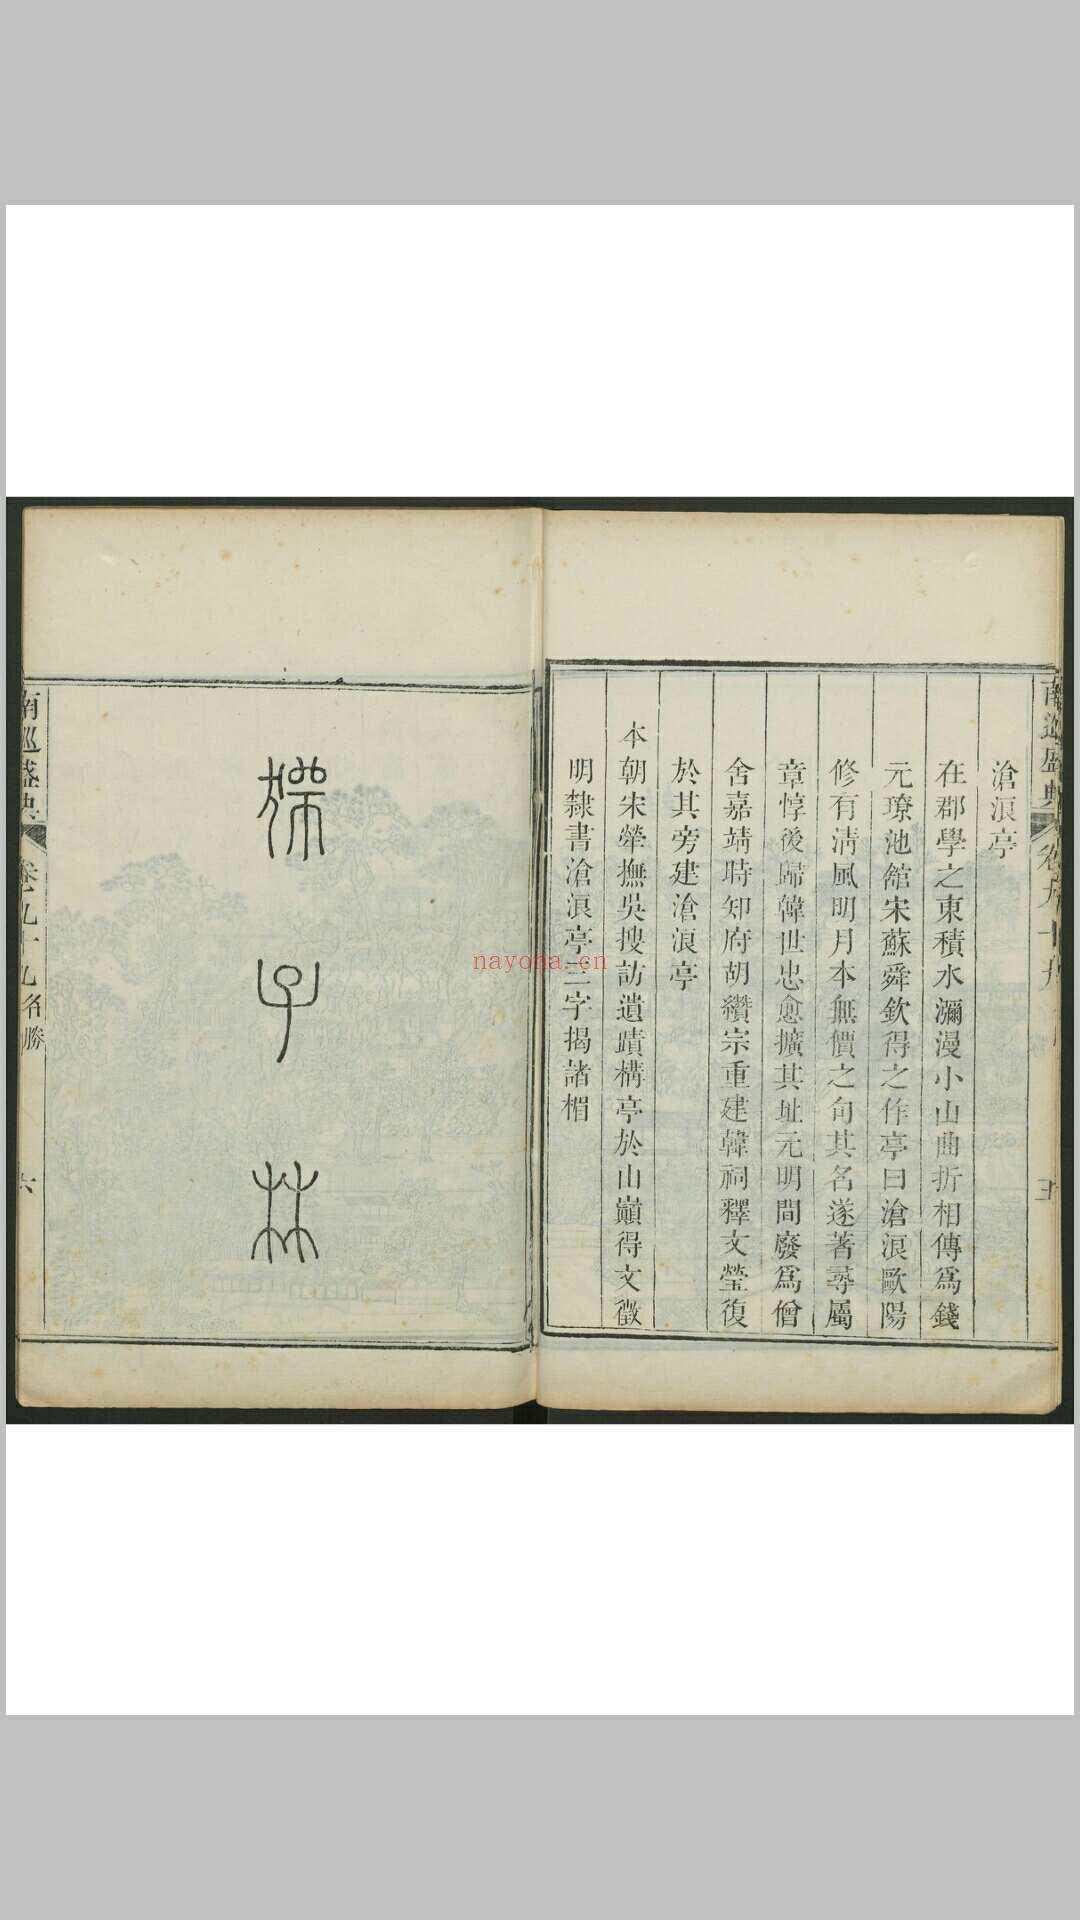 南巡盛典 卷九十九 名勝 五
滄浪亭
在郡學之東積水瀰漫小山曲折相傳爲錢
元璙池館宋蘇舜欽得之作亭曰滄浪歐陽
修有清風明月本無價之句其名遂著尋屬
章惇後歸韓世忠愈擴其址元明間廢爲僧
舍嘉靖時知府胡纘宗重建韓祠釋文瑩復
於其旁建滄浪亭
本朝宋犖撫吳搜訪遺蹟構亭於山巔得文徵
明隸書滄浪亭三字揭諸楣
獅子林
南巡盛典 卷之九十九 名勝 六
nayona.cn